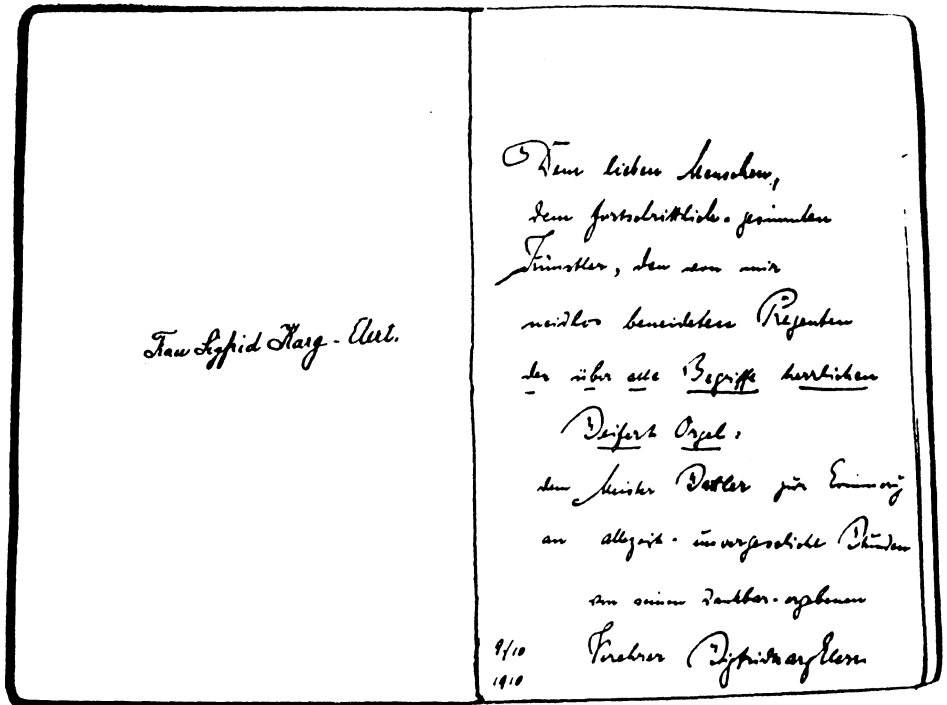 Frau Sigfrid Karg-Elert.
Dem lieben Menschen,
dem fortschrittlich-gesinnten
Künstler, dem von mir
neidlos beneideten Regenten
der über alle Begriffe herrlichen
Seifert Orgel:
dem Meister zur Erinnerung
an allezeit-unvergessliche Stunden
von seinem dankbar-ergebenen
Verehrer Sigfrid Karg Elert
9/10
1910